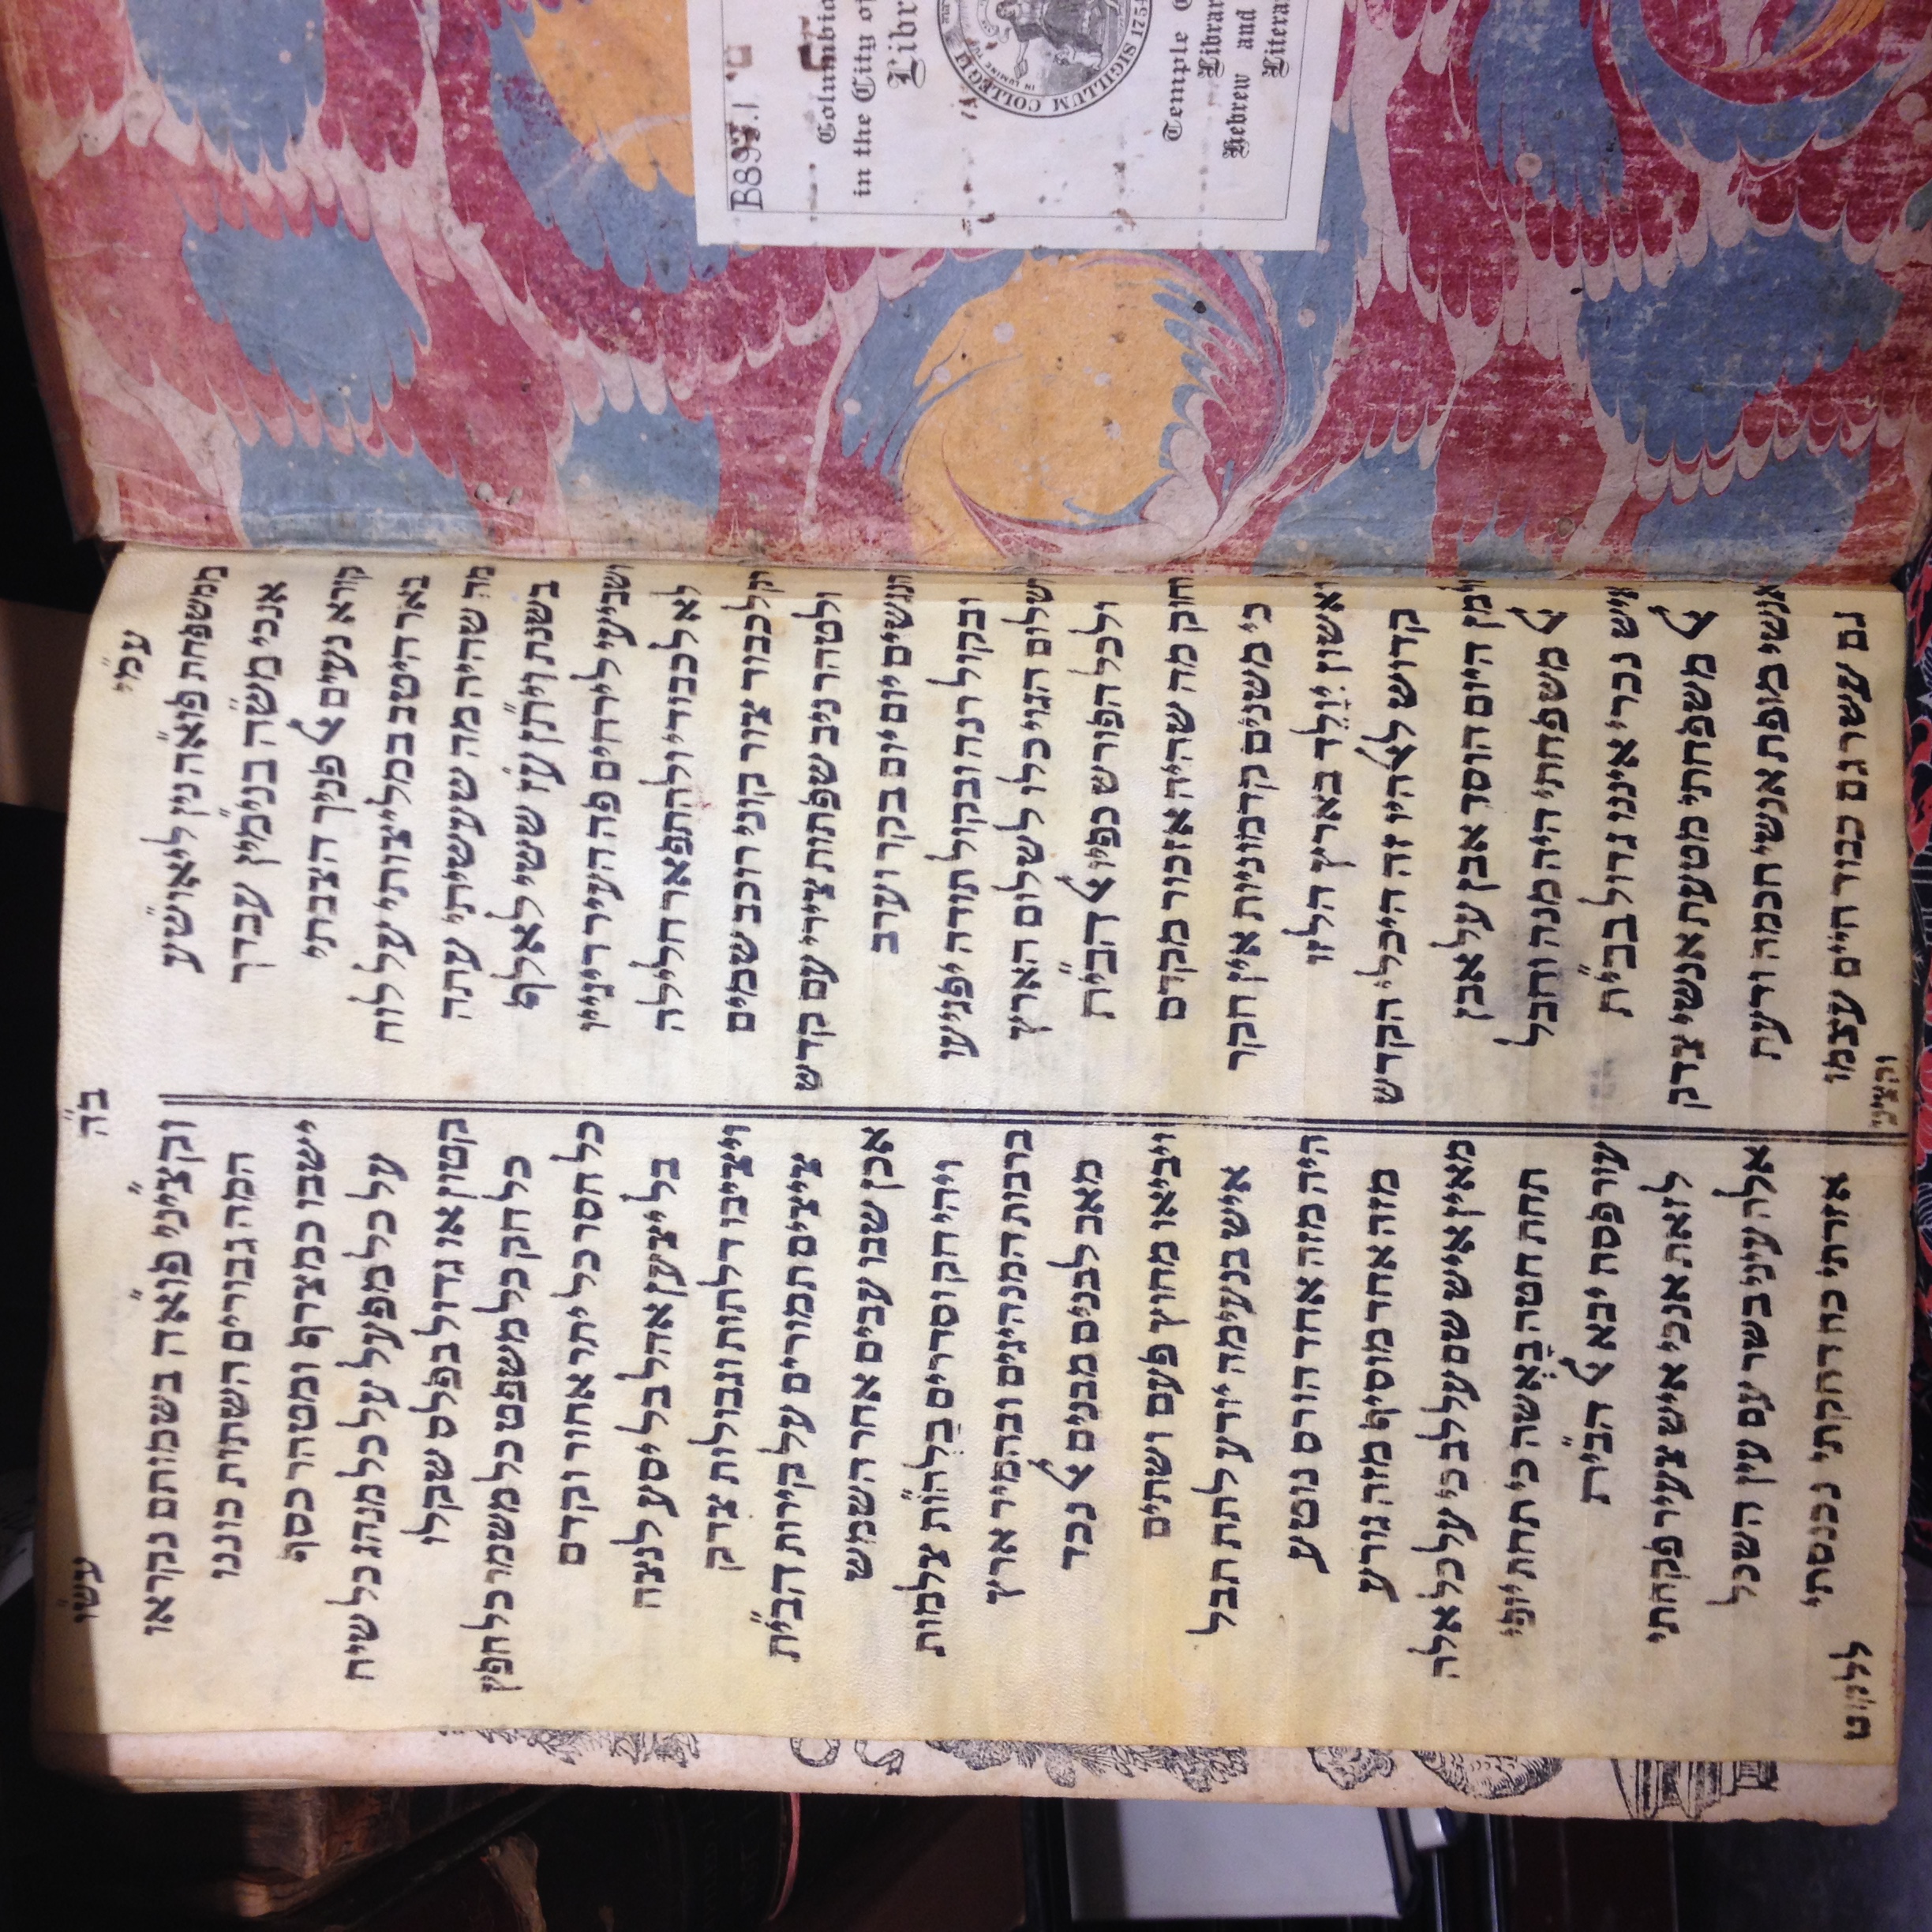 עמ״י
ב״ה
עש״ו
ממשפחת פוא״ה נין ליאוש״ע
אנכי מש״ה בנימ״ין עבדך
קורא נעים ﭏ פניך הצבתי
באר היטב במליצותי על לוח
מה שהיה מה שעשיתי עתה
בשנת וית״ן ע״ז ששי לאלף
ושביעי לירחים פה העיר רינייו
לא לכבודי ולהתפאר חלילה
רק לכבוד צור קוני רוכב שמים
ולטהר ניב שפתות צירי עם קדש
הנגשים יום יום בקר וערב
ובקול רנה ובקול תודה יפגיעו
שלום הגוי כלו לשלום הארץ
ולכל הפורש כפיו ﭏ הבי״ת
וחוק מה שהיה אזכור מקדם
כי משנים קדמוניות אין חקר
ראשון יִוָלֵד בארץ הלזו
קדוש לﭏהיו זה היכלי הקדש
ולמן היום הוסד אבן על אבן
ﭏ משפחתי היה מנה וחבל
איש נכרי איננו גדול בבי״ת
ﭏ משפחתי מטעת אנשי צדק
אנשי מופת אנשי חכמה ודעת
גם עשר גם כבוד חיים עצמו
וקציני
וקצי״ני פוא״ה בשמותם נקראו
המה גבורים השתות כוננו
ישבו כמצרף ומטהר כסף
על כל מפעל על כל מנהג כל שיח
קטון או גדול בפלס שקלו
כל חק כל משפט כל משמר כל חפץ
כל חסר כל יתר אחור וקדם
בל יצען אהל בל יסע לנצח
ויציבו דלתות וגבולות צדק
ציצים תמורים על קירות הבי״ת
אכן שבו עבים אחר השמש
ויהי חק וסדרים בַלְהו״ת צלמות
ברבות המנהיגים ובהמיר ארץ
מאב לבנים מבנים ﭏ נכד
ויביאו מחוץ פעם ושתים
איש בנעימה יודע לתת תבל
היה מזה אחד הורס נוטע
מזה אחד מוסיף מזה גורע
מאין איש שם על לב כי על כל אלה
תחת חטה בָאְשה כי תחת יופי
עור פסח יבא ﭏ הבי״ת
לזאת אנכי איש צעיר פקחתי
אלה עיני בשר עם עין השכל
אזרתי כח דחקתי נכנסתי
ללקוט
B893.1
Columbia
in the City of
Libr
SIGILLUM COLLEGII
1754
Temple
Librar
Hebrew and
Litera